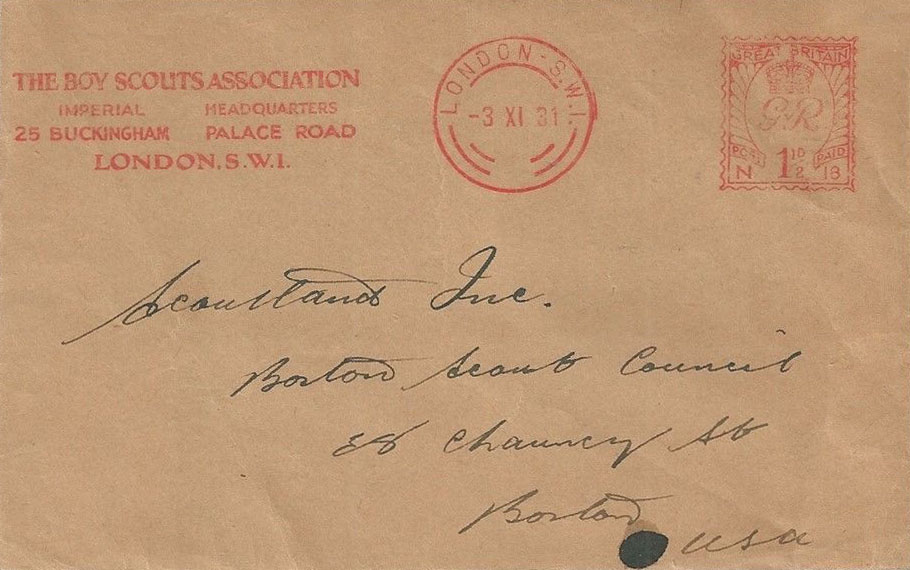 THE BOY SCOUTS ASSOCIATION
IMPERIAL HEADQUARTERS
25 BUCKINGHAM PALACE ROAD
LONDON.S.W.1.
LONDON-S.W.1.
-3 XI 31
GREAT BRITAIN
GR
POST PAID
N 1½D 13
Scoutland Inc.
Boston Scout Council
38 Chauncy St
Boston
USA